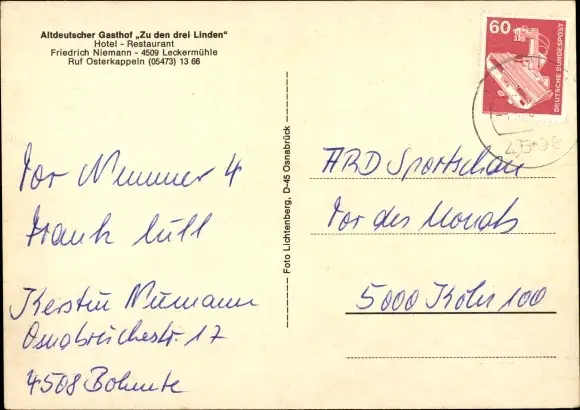 Altdeutscher Gasthof „Zu den drei Linden“
Hotel - Restaurant
Friedrich Niemann - 4509 Leckermühle
Ruf Osterkappeln (05473) 13 66
60
DEUTSCHE BUNDESPOST
Foto Lichtenberg, D-45 Osnabrück
Tor Nummer 4
Frank Mill
Kerstin Niemann
Osnabrückerstr. 17
4508 Bohmte
ARD Sportschau
Tor des Monats
5000 Köln 100